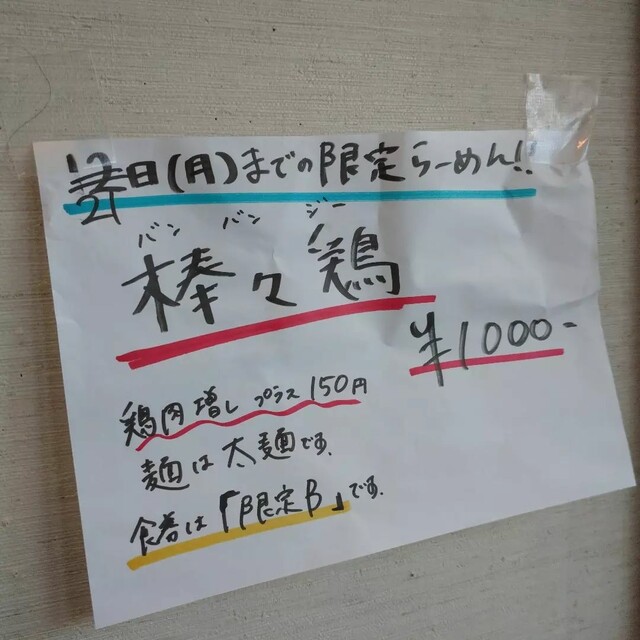 日(月)までの限定らーめん!!
21
バンバンジー
棒々鶏
¥1000-
鶏肉増しプラス150円
麺は太麺です.
食券は「限定B」です.